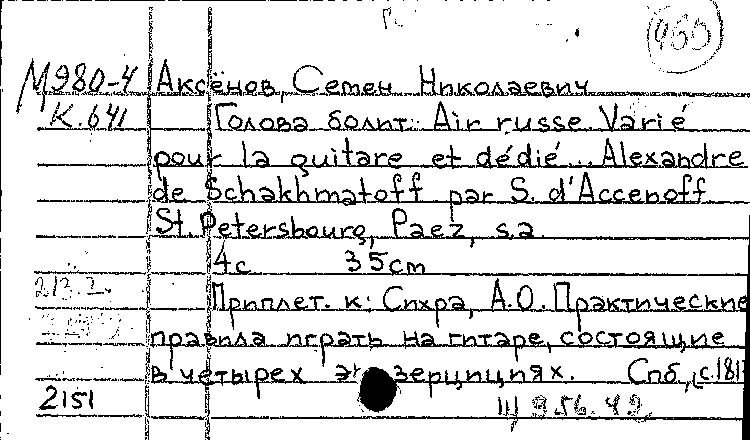 М980-4 Аксёнов, Семен Николаевич
К.641 Голова болит. Air russe Varié
pour la guitare et dédié... Alexandre
de Schakhmatoff par S. d'Accenoff
St. Petersbourg, Paez, s.a.
4с 35см
Приплет. к: Сихра, А.О. Практические
правила играть на гитаре, состоящие
в четырех эк зерцициях. Спб,
2151